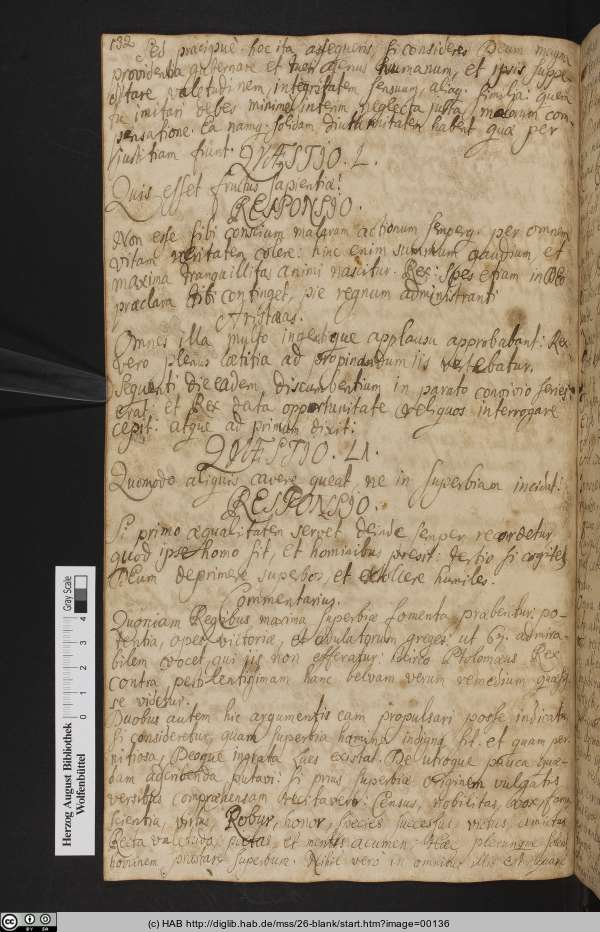 132
es præcipuè hoc ita assequeris, si consideres Deum magna
providentia gubernare et tueri genus humanum, et ipsis suppe-
ditare valetudinem, integritatem sensuum, aliaq. similia: quem
tu imitari debes minimè interim neglecta justa malorum com-
pensatione. Ea namq. solidam diuturnitatem habent quæ per
justitiam fiunt. QUÆSTIO. L.
Quis esset fructus sapientiæ?
RESPONSIO.
Non esse sibi conscium malarum actionum semperq. per omnem
vitam veritatem colere: hinc enim summum gaudium et
maxima tranquillitas animi nascitur. Rex: Spes etiam in DEO
præclara tibi continget, pie regnum administranti
Aristæas.
Omnes illa multo ingentique applausu approbabant: Rex
vero plenus lætitia ad propinandum iis vertebatur.
Sequenti die eadem discumbentium in parato convivio series
erat; et Rex data opportunitate reliquos interrogare
cepit: atque ad primum dixit:
QUÆSTIO. LI.
Quomodo aliquis cavere queat, ne in superbiam incidat?
RESPONSIO.
Si primo æqualitatem servet deinde semper recordetur
quod ipse homo sit, et hominibus præsit: tertio si cogitet
DEum deprimere superbos, et extollere humiles.
Commentarius.
Quoniam Regibus maxima superbiæ fomenta præbentur: po-
tentia, opes, victoriæ, et adulatorum greges: ut admira-
bilem vocet, qui iis non efferatur: Ideirco Ptolomæus Rex
contra pestilentissimam hanc belvam verum remedium quæsi-
se videtur.
Duobus autem hic argumentis eam propulsari posse indicatur,
si consideretur, quam superbia homine indigna sit. et quam per-
nitiosa, Deoque ingrata Lues existat. De utroque pauca quæ-
dam adscribenda putavi: si prius superbiæ originem vulgatis
versibus comprehensam recitavero: Census, nobilitas, uxor, fama
scientia, virtus Robur, honor, species successus, victus amictus
Recta valetudo, ætas, et mentis acumen: Hæc plerunque solent
hominem præstare superbum. Nihil vero in omnibus illis est quare
Herzog August Bibliothek
Wolfenbüttel
0 1 2 3 4
Gray Scale
(c) HAB http://diglib.hab.de/mss/26-blank/start.htm?image=00136
CC BY SA